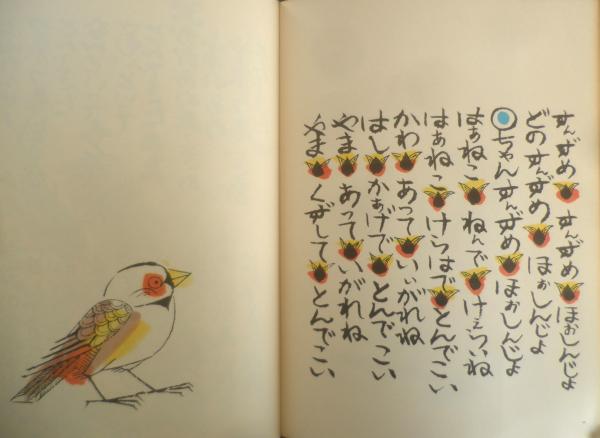 すんずめ すんずめ ほぉしんじょ
どのすんずめ ほぉしんじょ
◎ちゃんすんずめ ほぉしんじょ
はぁねこ ねんで けぇらいね
はぁねこ けらはで とんでこい
かわ あって いぃがれね
はし かぁげで とんでこい
やま あって いがれね
やま くずして とんでこい